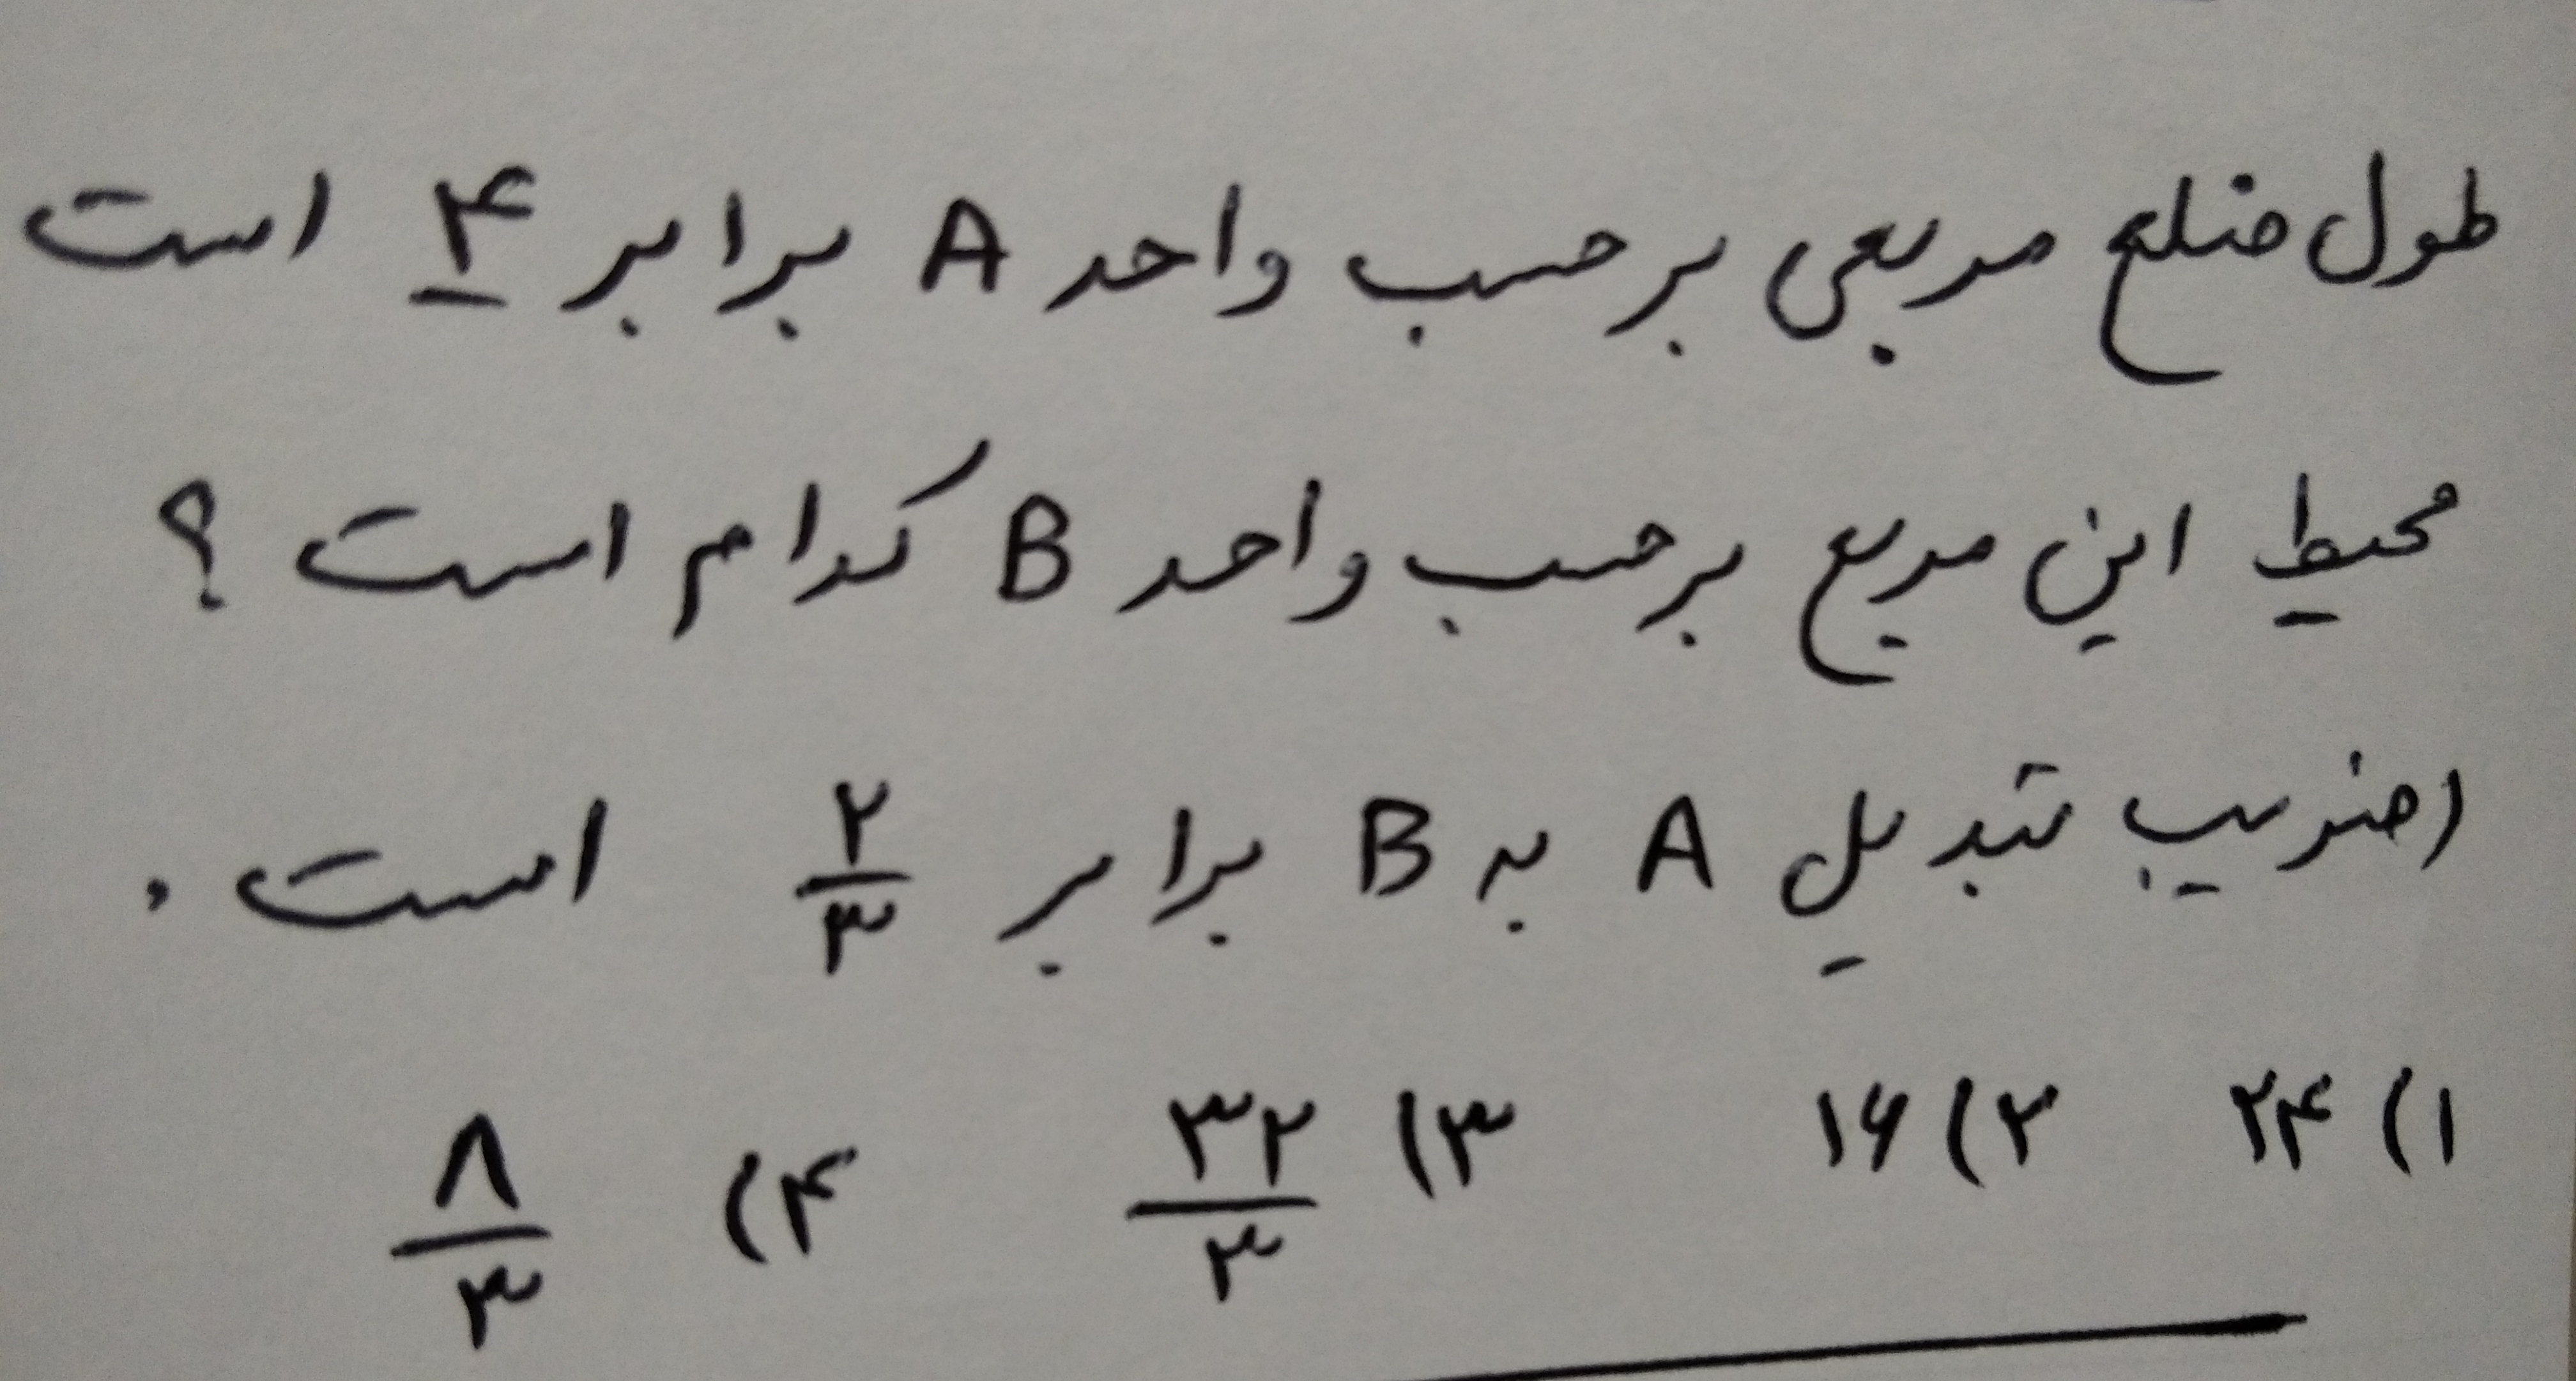 طول ضلع مربعی برحسب واحد A برابر ۴ است
محیط این مربع برحسب واحد B کدام است ؟
(ضریب تبدیل A به B برابر ۲/۳ است .
۱) ۲۴ ۲) ۱۶ ۳) ۳۲/۳ ۴) ۸/۳